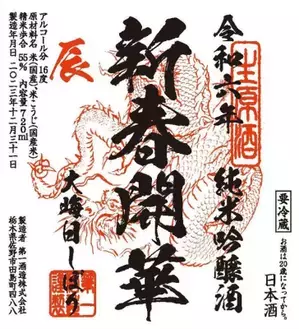 令和六年
生原酒
純米吟醸酒
要冷蔵
お酒は20歳になってから。
日本酒
新春開華
辰
大晦日しぼり
アルコール分 16度
原材料名 米（国産）、米こうじ（国産米）
精米歩合 55% 内容量 720ml
製造年月日 二〇二三年十二月三十一日
製造者 第一酒造株式会社
栃木県佐野市田島町四八八